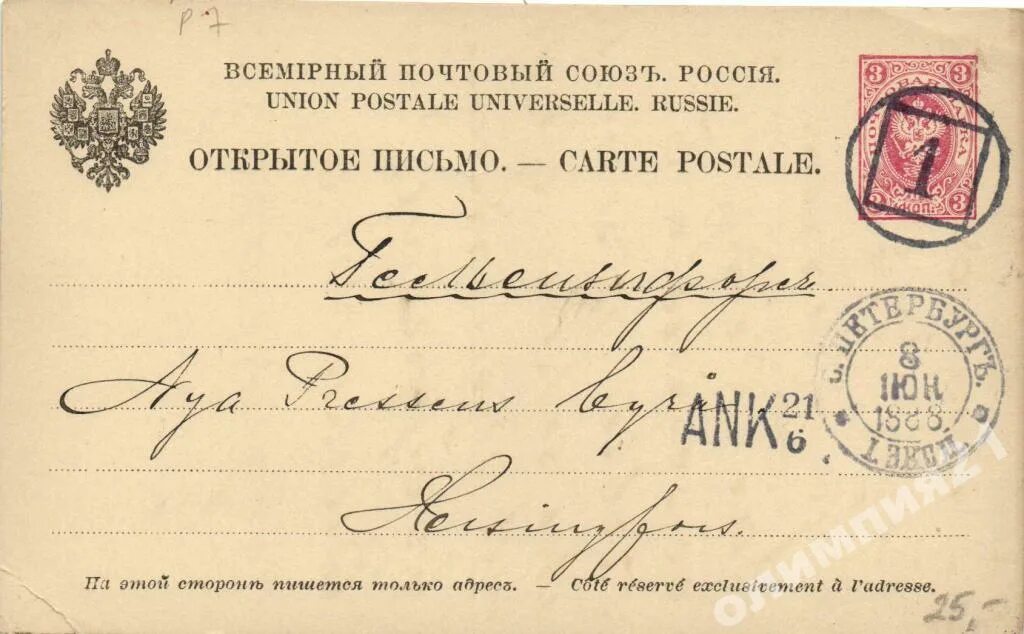 р 7
ВСЕМІРНЫЙ ПОЧТОВЫЙ СОЮЗЪ. РОССІЯ.
UNION POSTALE UNIVERSELLE. RUSSIE.
ОТКРЫТОЕ ПИСЬМО. — CARTE POSTALE.
3 3
ПОЧТОВАЯ МАРКА
1
3 КОП. 3
Гельсингфорсъ
С. ПЕТЕРБУРГЪ.
8
ІЮН
1888
1 ЭКСП.
Nya Pressens Byrå
ANK 21/6
Helsingfors.
На этой сторонѣ пишется только адресъ. — Côté réservé exclusivement à l'adresse.
25,-
ОЛИМПИЯ21